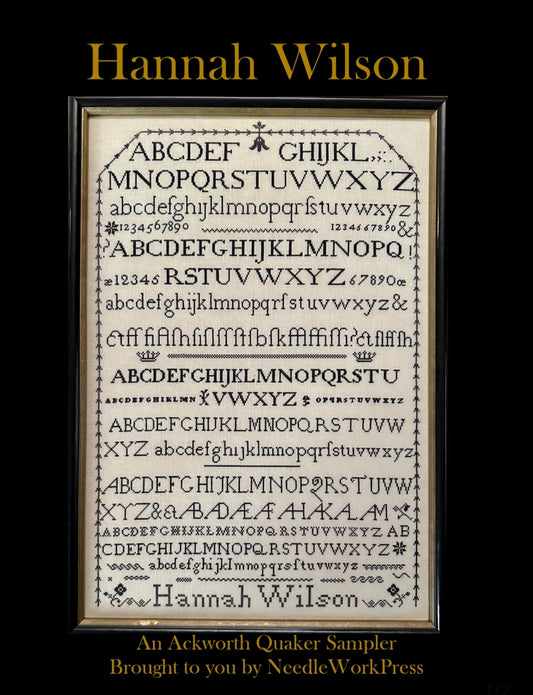 Hannah Wilson
ABCDEF GHIJKL,;:.
MNOPQRSTUVWXYZ
abcdefghijklmnopqrſstuvwxyz
1234567890 1234567890&
?ABCDEFGHIJKLMNOPQ!
æ12345 RSTUVWXYZ 67890œ
abcdefghijklmnopqrſstuvwxyz&
ABCDEFGHIJKLMNOPQRSTU
ABCDEFGHIJKLMN VWXYZ OPQRSTUVWXYZ
ABCDEFGHIJKLMNOPQRSTUVW
XYZ abcdefghijklmnopqrstuvwxyz
ABCDEFGHIJKLMNOPQRSTUVW
XYZ&
ABCDEFGHIJKLMNOPQRSTUVWXYZ AB
CDEFGHIJKLMNOPQRSTUVWXYZ
abcdefghijklmnopqrsſtuvwxyz
Hannah Wilson
An Ackworth Quaker Sampler
Brought to you by NeedleWorkPress